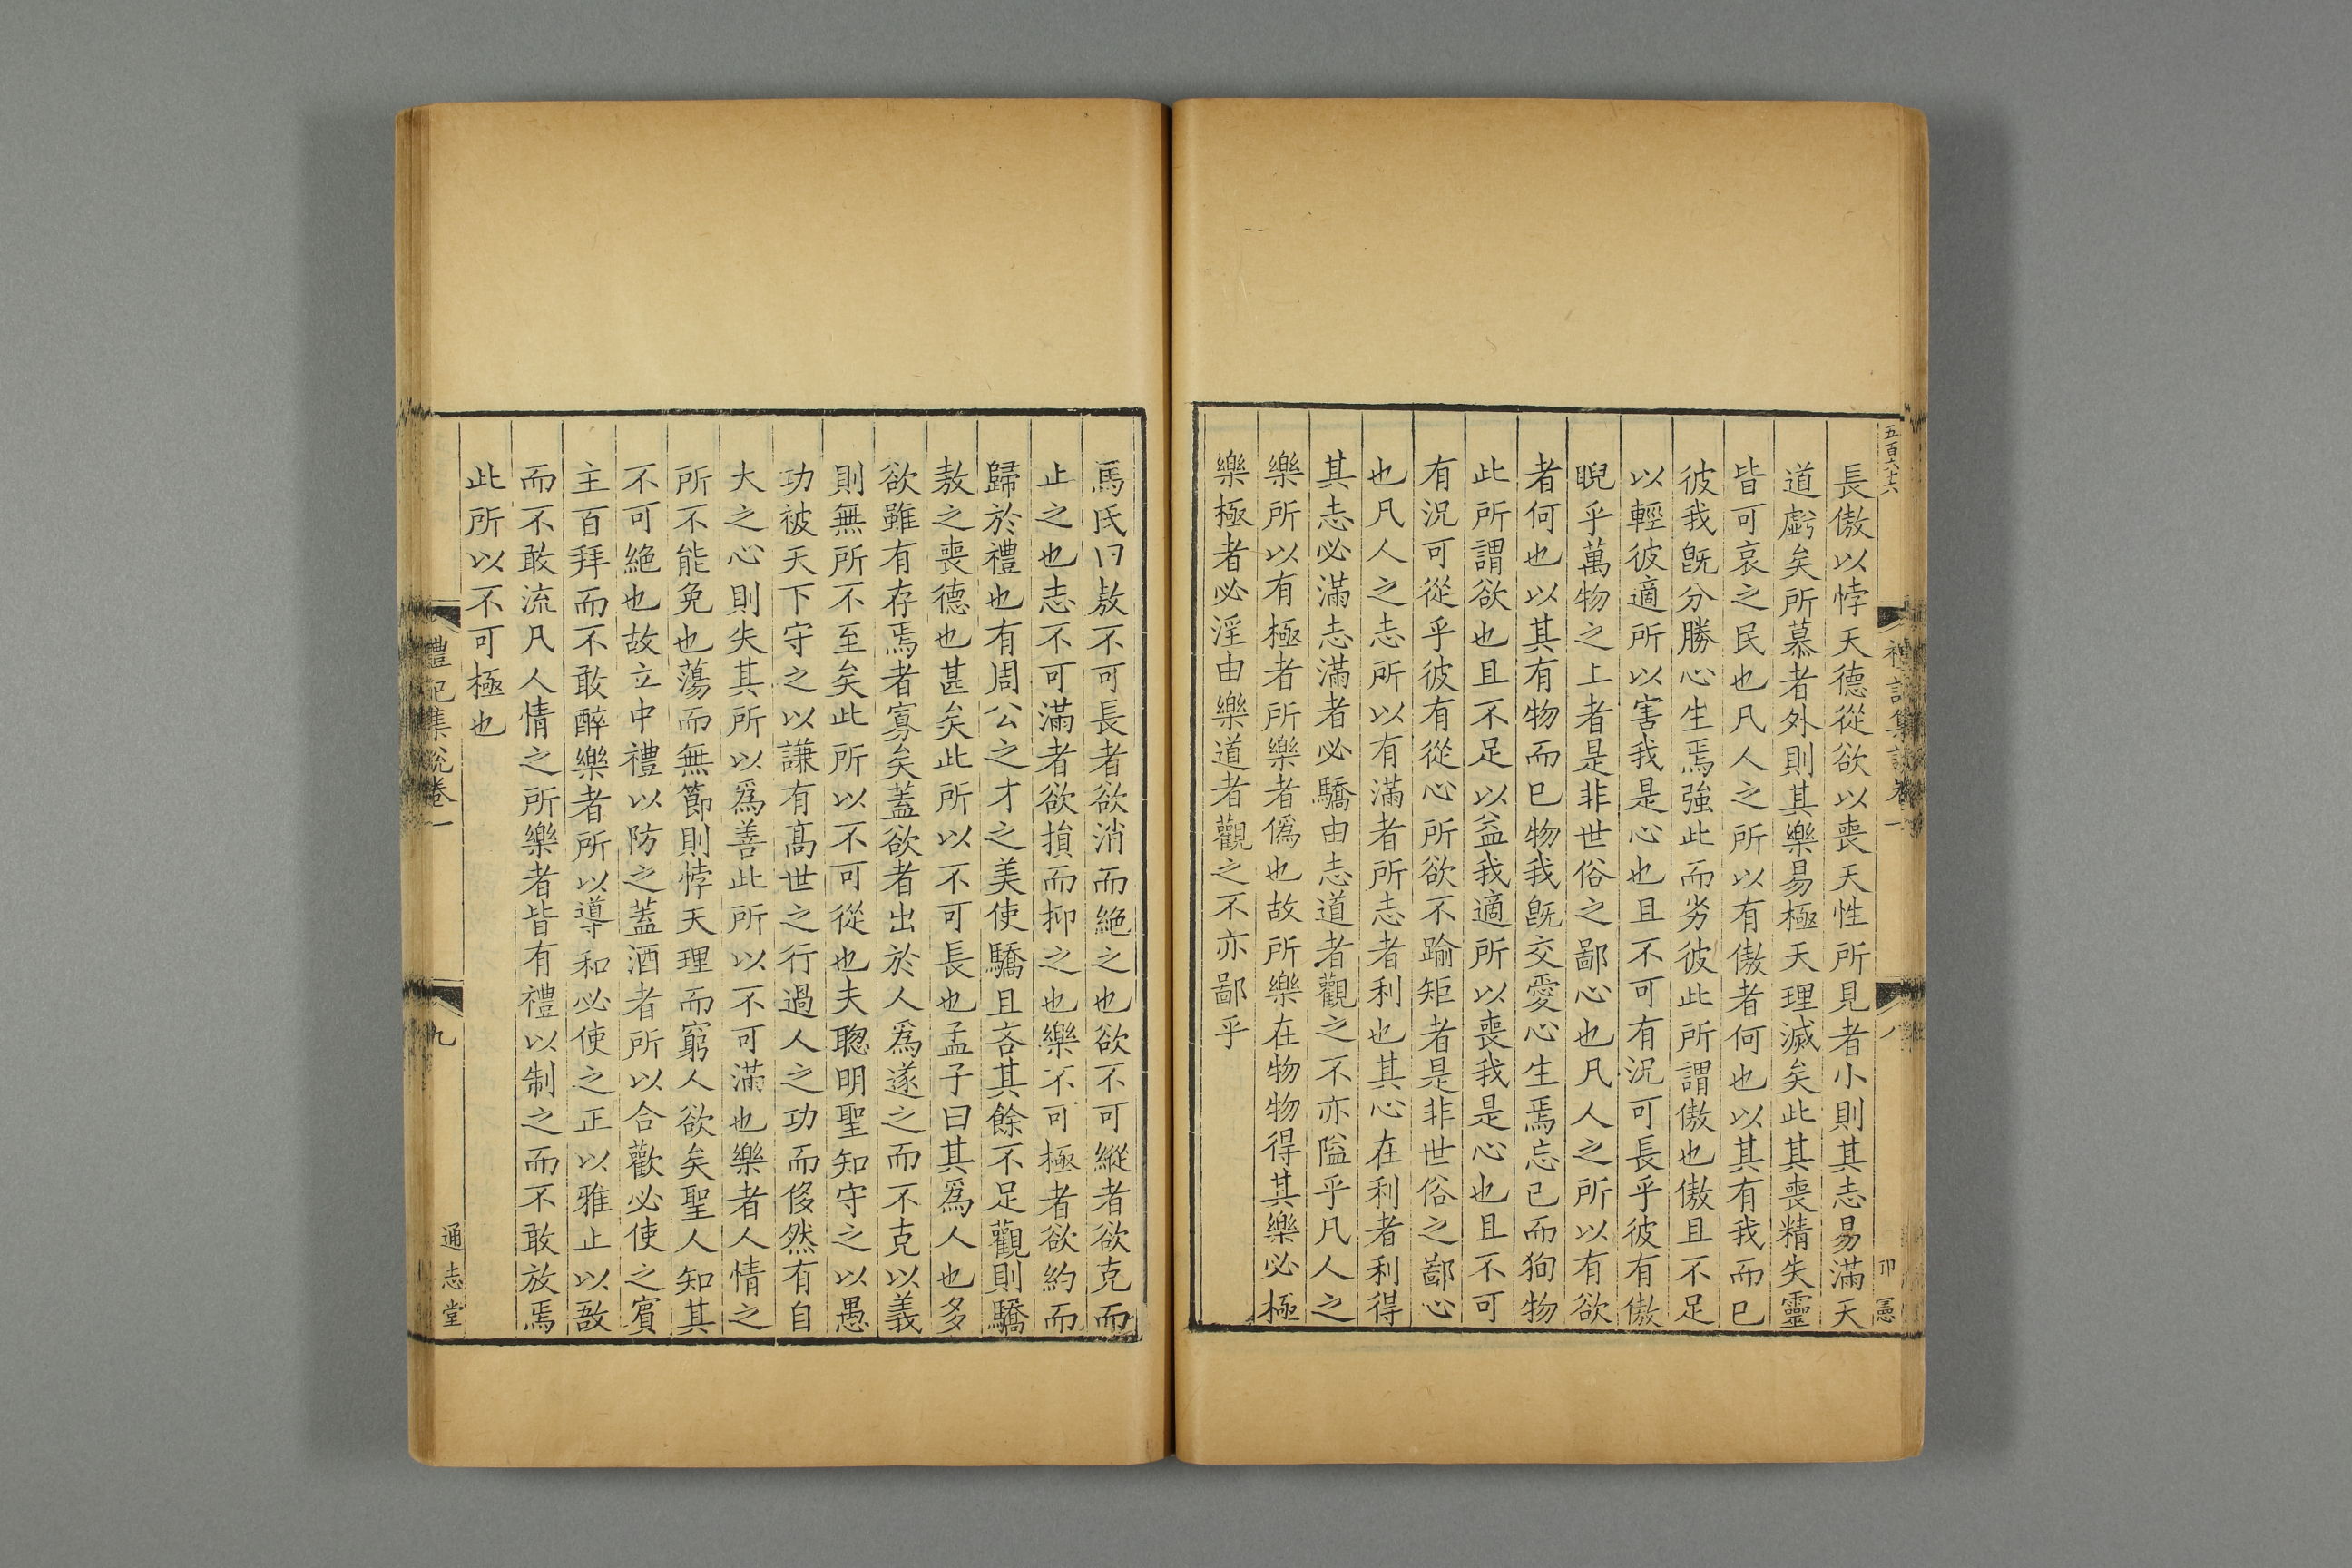 五百六十六
禮記集說卷一
八
卭
憲
長傲以悖天德從欲以喪天性所見者小則其志易滿天
道虧矣所慕者外則其樂易極天理滅矣此其喪精失靈
皆可哀之民也凡人之所以有傲者何也以其有我而已
彼我旣分勝心生焉強此而劣彼此所謂傲也傲且不足
以輕彼適所以害我是心也且不可有況可長乎彼有傲
睨乎萬物之上者是非世俗之鄙心也凡人之所以有欲
者何也以其有物而已物我旣交愛心生焉忘己而狥物
此所謂欲也且不足以益我適所以喪我是心也且不可
有況可從乎彼有從心所欲不踰矩者是非世俗之鄙心
也凡人之志所以有滿者所志者利也其心在利者利得
其志必滿志滿者必驕由志道者觀之不亦隘乎凡人之
樂所以有極者所樂者僞也故所樂在物物得其樂必極
樂極者必淫由樂道者觀之不亦鄙乎
馬氏曰敖不可長者欲消而絕之也欲不可縱者欲克而
止之也志不可滿者欲損而抑之也樂不可極者欲約而
歸於禮也有周公之才之美使驕且吝其餘不足觀則驕
敖之喪德也甚矣此所以不可長也孟子曰其爲人也多
欲雖有存焉者寡矣蓋欲者出於人爲遂之而不克以義
則無所不至矣此所以不可從也夫聰明聖知守之以愚
功被天下守之以謙有高世之行過人之功而侈然有自
大之心則失其所以爲善此所以不可滿也樂者人情之
所不能免也蕩而無節則悖天理而窮人欲矣聖人知其
不可絕也故立中禮以防之蓋酒者所以合歡必使之賓
主百拜而不敢醉樂者所以導和必使之正以雅止以敔
而不敢流凡人情之所樂者皆有禮以制之而不敢放焉
此所以不可極也
禮記集說卷一
九
通志堂